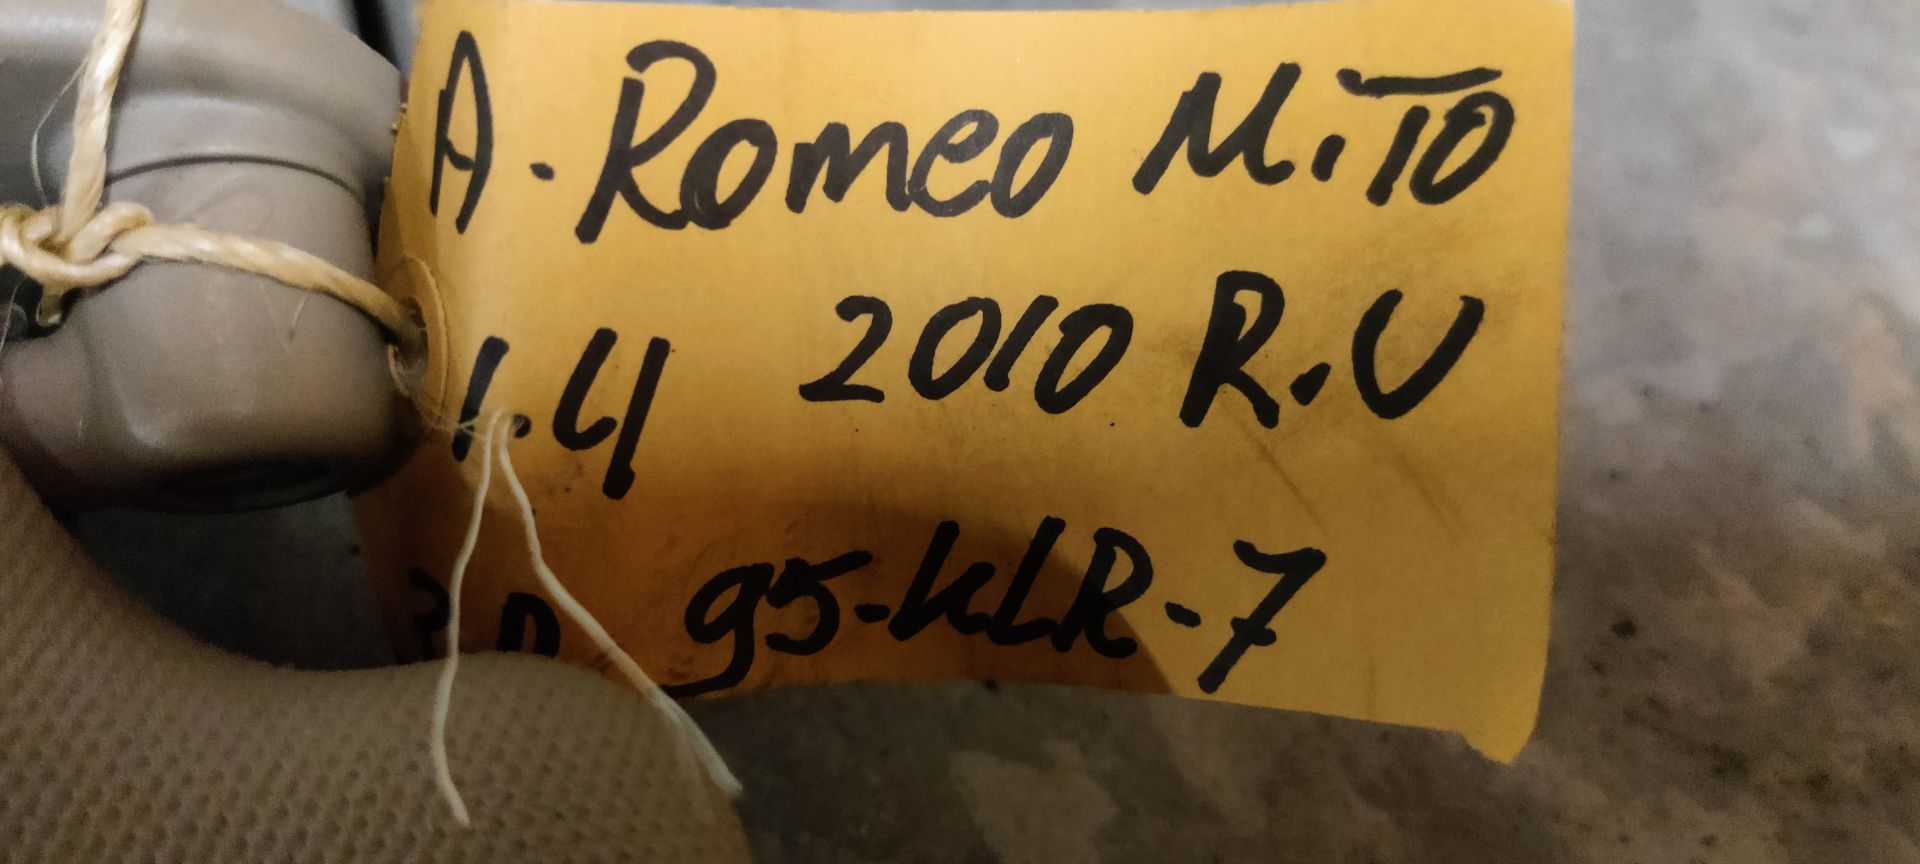 A. Romeo M.TO
1.4 2010 R.V
95-KLR-7